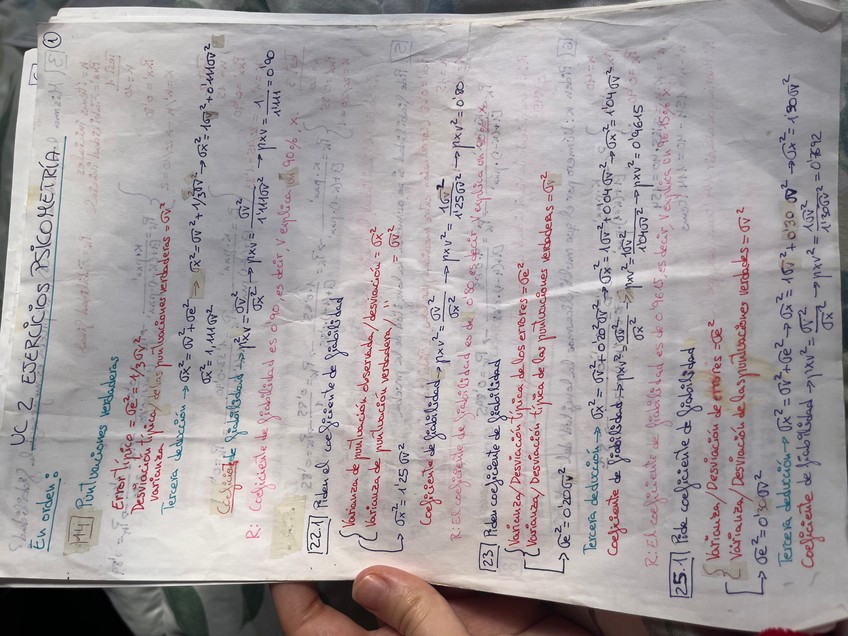 UC 2 EJERCICIOS PSICOMETRÍA
①
En orden:
14 Puntuaciones verdaderas
Error típico = σe² = 1/3σv²
Desviación típica / de las puntuaciones verdaderas = σv²
Varianza
Tercera deducción → σx² = σv² + σe² → σx² = σv² + 1/3σv² → σx² = 1σv² + 0'111σv²
σx² = 1,111σv²
Coeficient de fiabilidad → ρxv² = σv²/σx² → ρxv = σv²/1'111σv² → ρxv = 1/1'111 = 0'90
R: Coeficiente de fiabilidad es 0'90, es decir V explica un 90% x.
22.1 Piden el coeficiente de fiabilidad
Varianza de puntuación observada/desviación = σx²
Varianza de puntuación verdadera/ " = σv²
→ σx² = 1'25σv²
Coeficiente de fiabilidad → ρxv² = σv²/σx² → ρxv² = 1σv²/1'25σv² → ρxv² = 0'80
R: El coeficiente de fiabilidad es de 0'80, es decir V explica un 80% x
23 Piden coeficiente de fiabilidad
Varianza/Desviación típica de los errores = σe²
Varianza/Desviación típica de las puntuaciones verdaderas = σv²
→ σe² = 0'20σv²
Tercera deducción → σx² = σv² + 0'20²σv² → σx² = 1σv² + 0'04σv² → σx² = 1'04σv²
Coeficiente de fiabilidad → ρxv² = σv²/σx² → ρxv² = 1σv²/1'04σv² → ρxv² = 0'9615
R: El coeficiente de fiabilidad es de 0'9615 es decir V explica un 96'15% x
25.1 Pide coeficiente de fiabilidad
Varianza/Desviación de errores = σe²
Varianza/Desviación de las puntuaciones verdades = σv²
→ σe² = 0'30σv²
Tercera deducción → σx² = σv² + σe² → σx² = 1σv² + 0'30σv² → σx² = 1'30σv²
Coeficiente de fiabilidad → ρxv² = σv²/σx² → ρxv² = 1σv²/1'30σv² = 0'7692